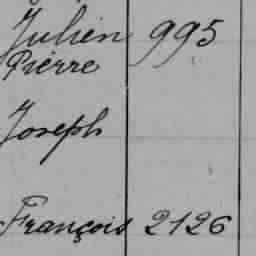 Julien 995
Pierre
Joseph
François 2126